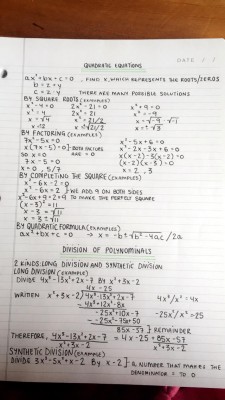 DATE / /
QUADRATIC EQUATIONS
ax²+bx+c=0, FIND X, WHICH REPRESENTS THE ROOTS/ZEROS
THERE ARE MANY POSSIBLE SOLUTIONS
BY SQUARE ROOTS (EXAMPLES)
x²-4=0 2x²-21=0 x²+9=0
x²=4 2x²=21 x²=-9
x=√4 x²=21/2 x=√-9·√-1
BY FACTORING (EXAMPLES)
7x²-5x=0 x²-5x+6=0
x(7x-5)=0 BOTH FACTORS x²-2x-3x+6=0
SO x=0 ARE = 0 x(x-2)-3(x-2)=0
7x-5=0 (x-2)(x-3)=0
x=0, 5/7 x=2, 3
BY COMPLETING THE SQUARE (EXAMPLES)
x²-6x-2=0
x²-6x=2 WE ADD 9 ON BOTH SIDES
x²-6x+9=2+9 TO MAKE THE PERFECT SQUARE
(x-3)²=11
x-3=√11
x=3±√11
BY QUADRATIC FORMULA (EXAMPLES)
ax²+bx+c=0 → x=-b±√b²-4ac/2a
DIVISION OF POLYNOMIALS
2 KINDS: LONG DIVISION AND SYNTHETIC DIVISION
LONG DIVISION (EXAMPLE)
DIVIDE 4x⁴-13x²+2x-7 BY x²+3x-2
4x-25
WRITTEN x²+3x-2 √4x³-13x²+2x-7 4x³/x²=4x
-4x³+12x²-8x
-25x²+10x-7 -25x²/x²
-25x²-75x+50
85x-57 } REMAINDER
THEREFORE, 4x³-13x²+2x-7 / x²+3x-2 = 4x-25+ 85x-57 / x²+3x-2
SYNTHETIC DIVISION (EXAMPLE)
DIVIDE 3x³-5x²+x-2 BY x-2 A NUMBER THAT MAKES THE
DENOMINATOR = TO 0